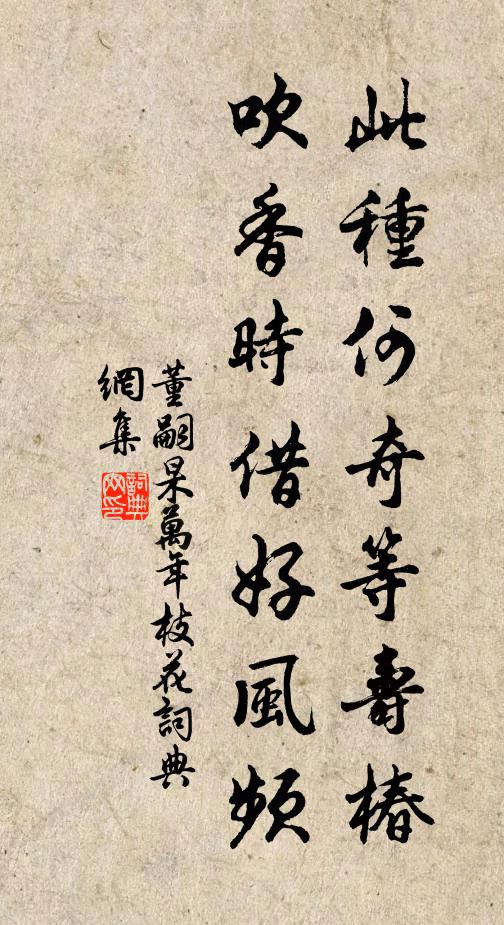 此種何奇等壽椿
吹香時借好風頻
董嗣杲萬年枝花詞典
網集
詞典網印